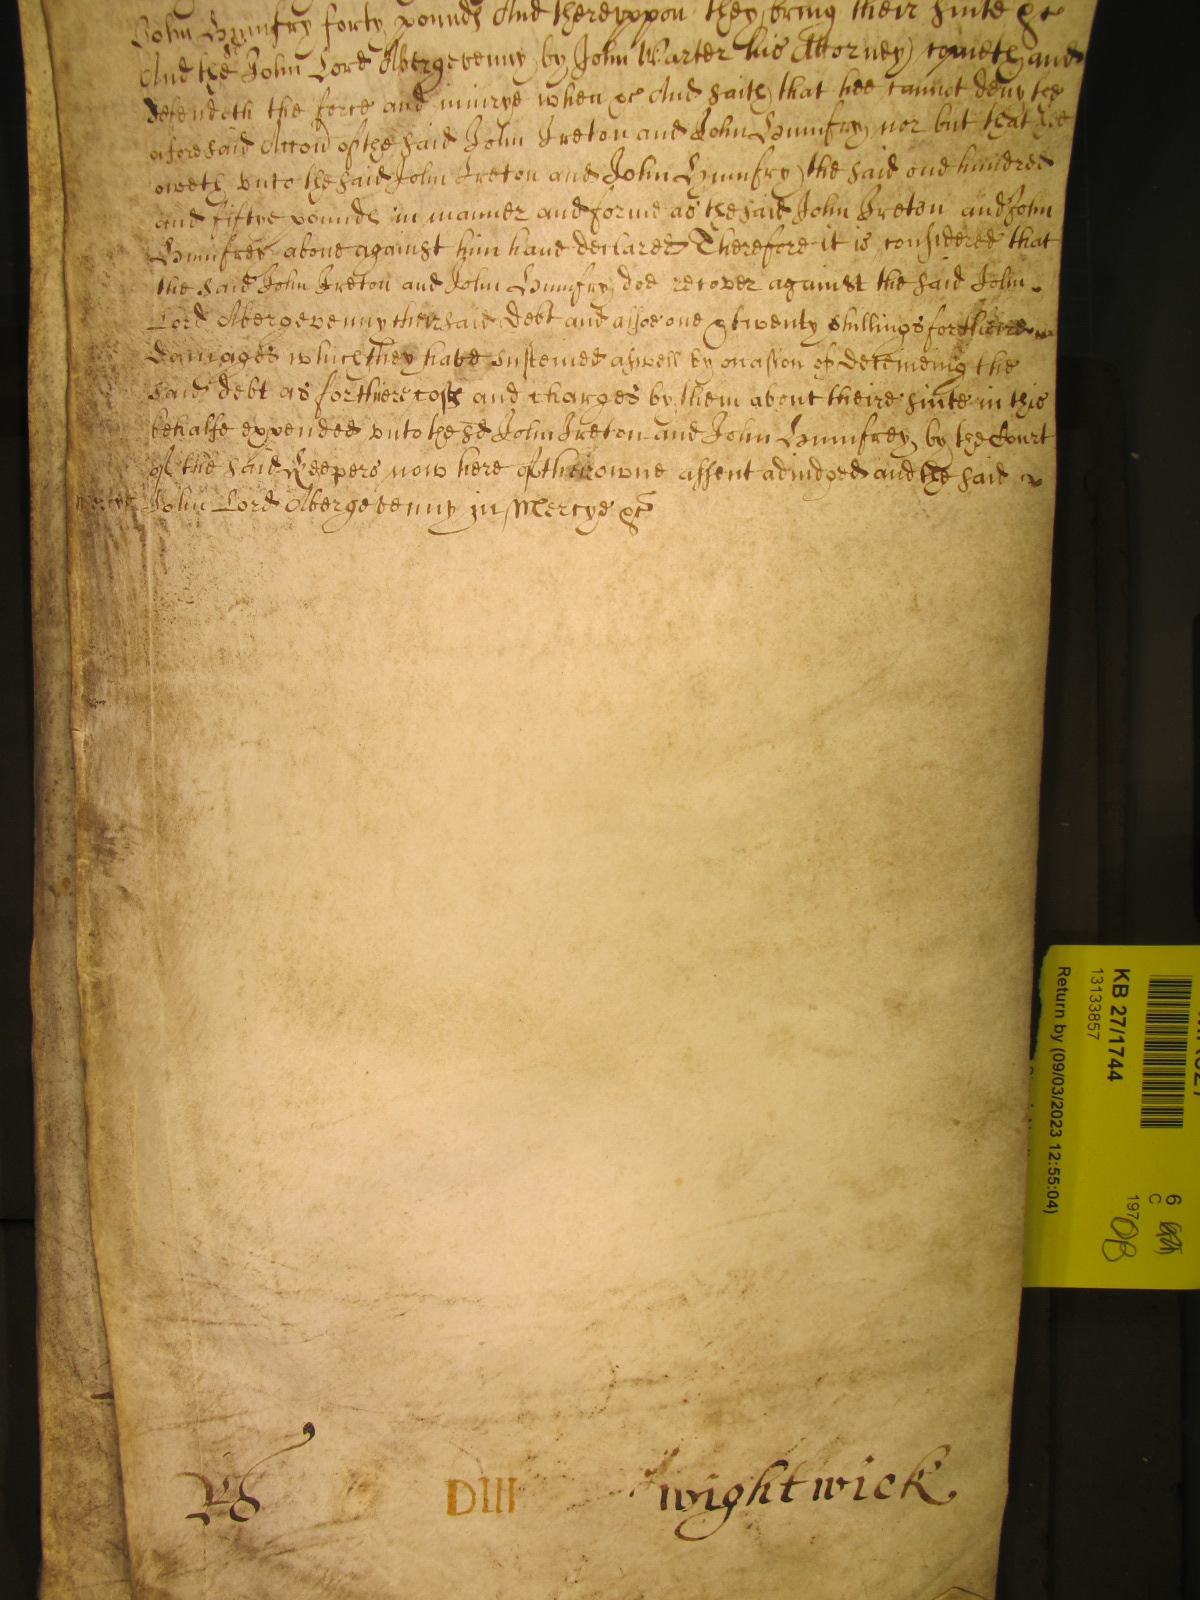 John Humfry forty pounds And thereuppon they bring their suite &c
And the John Lord Abergevenny by John Warter his Attorney cometh and
defendeth the force and iniurye when &c And saith that hee cannot deny the
aforesaid Accon of the said John Ireton and John Humfry nor but that he
oweth vnto the said John Ireton and John Humfry the said one hundred
and fiftye pounds in manner and forme as the said John Ireton and John
Humfrey aboue against him haue declared Therefore it is considered that
the said John Ireton and John Humfry doe recover against the said John
Lord Abergevenny their said Debt and alsoe one & twenty shillings for theire
Damages which they have susteined aswell by occasion of deteineing the
said debt as for there costs and charges by them about theire suite in this
behalfe expended vnto the sd John Ireton and John Humfrey by the Court
of the said Keepers now here of their owne assent adiudged and the said
mercye John Lord Abergevenny in Mercye &c
Ro
DIII
Wightwick
KB 27/1744
13133857
Return by (09/03/2023 12:55:04)
6
C
197